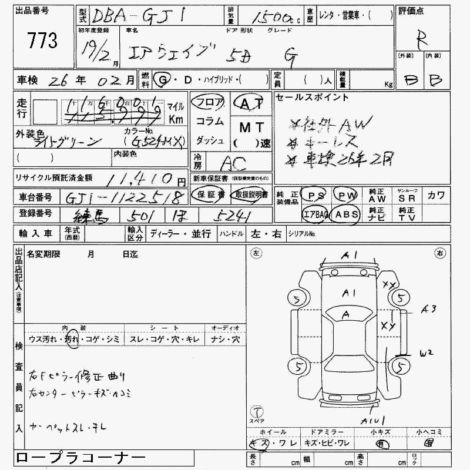 出品番号 773
型式 DBA-GJ1 排気量 1500cc 車歴 レンタ・営業車・( ) 評価点 R
初年度登録 19/2月 車名 エアウェイブ ドア 形状 5D グレード G
(外装) B (内装) B
車検 26年02月 燃料 G・D・ハイブリッド・( ) 定員 ( )人 積載量 Kg
走行 マイル Km フロア AT セールスポイント
コラム MT 社外AW
外装色 ライトグリーン カラーNo (G524MX) ダッシュ ( )速 キーレス
(内装色) 冷房 AC 車検26年2月
リサイクル預託済金額 11,410円 新車保証書
車台番号 GJ1-1122518 保証書 取扱説明書 純正装備品 PS PW 純正AW サンルーフ SR カワ
登録番号 練馬 501 ほ 5241 エアBAG ABS 純正ナビ TV
輸入車 年式(西暦) 輸入区分 ディーラー・並行 ハンドル 左・右 シリアルNo.
出品店記入 名変期限 年 月 日迄
左 A1 右
内装 シート オーディオ
ウス汚れ・汚れ・コゲ・シミ スレ・コゲ・穴・キレ ナシ・穴
検査員記入
右Fピラー修正曲り
右センターピラーキズヘコミ
カーペットスレ・テレ
A1 XX 5 5 A A3 XX W2 5 5
スペア T AIUI
ホイール ドアミラー 小キズ 小ヘコミ
キズ・ワレ キズ・ヒビ・ワレ 有 有
長さ cm 幅 cm 高さ cm
ロープラコーナー